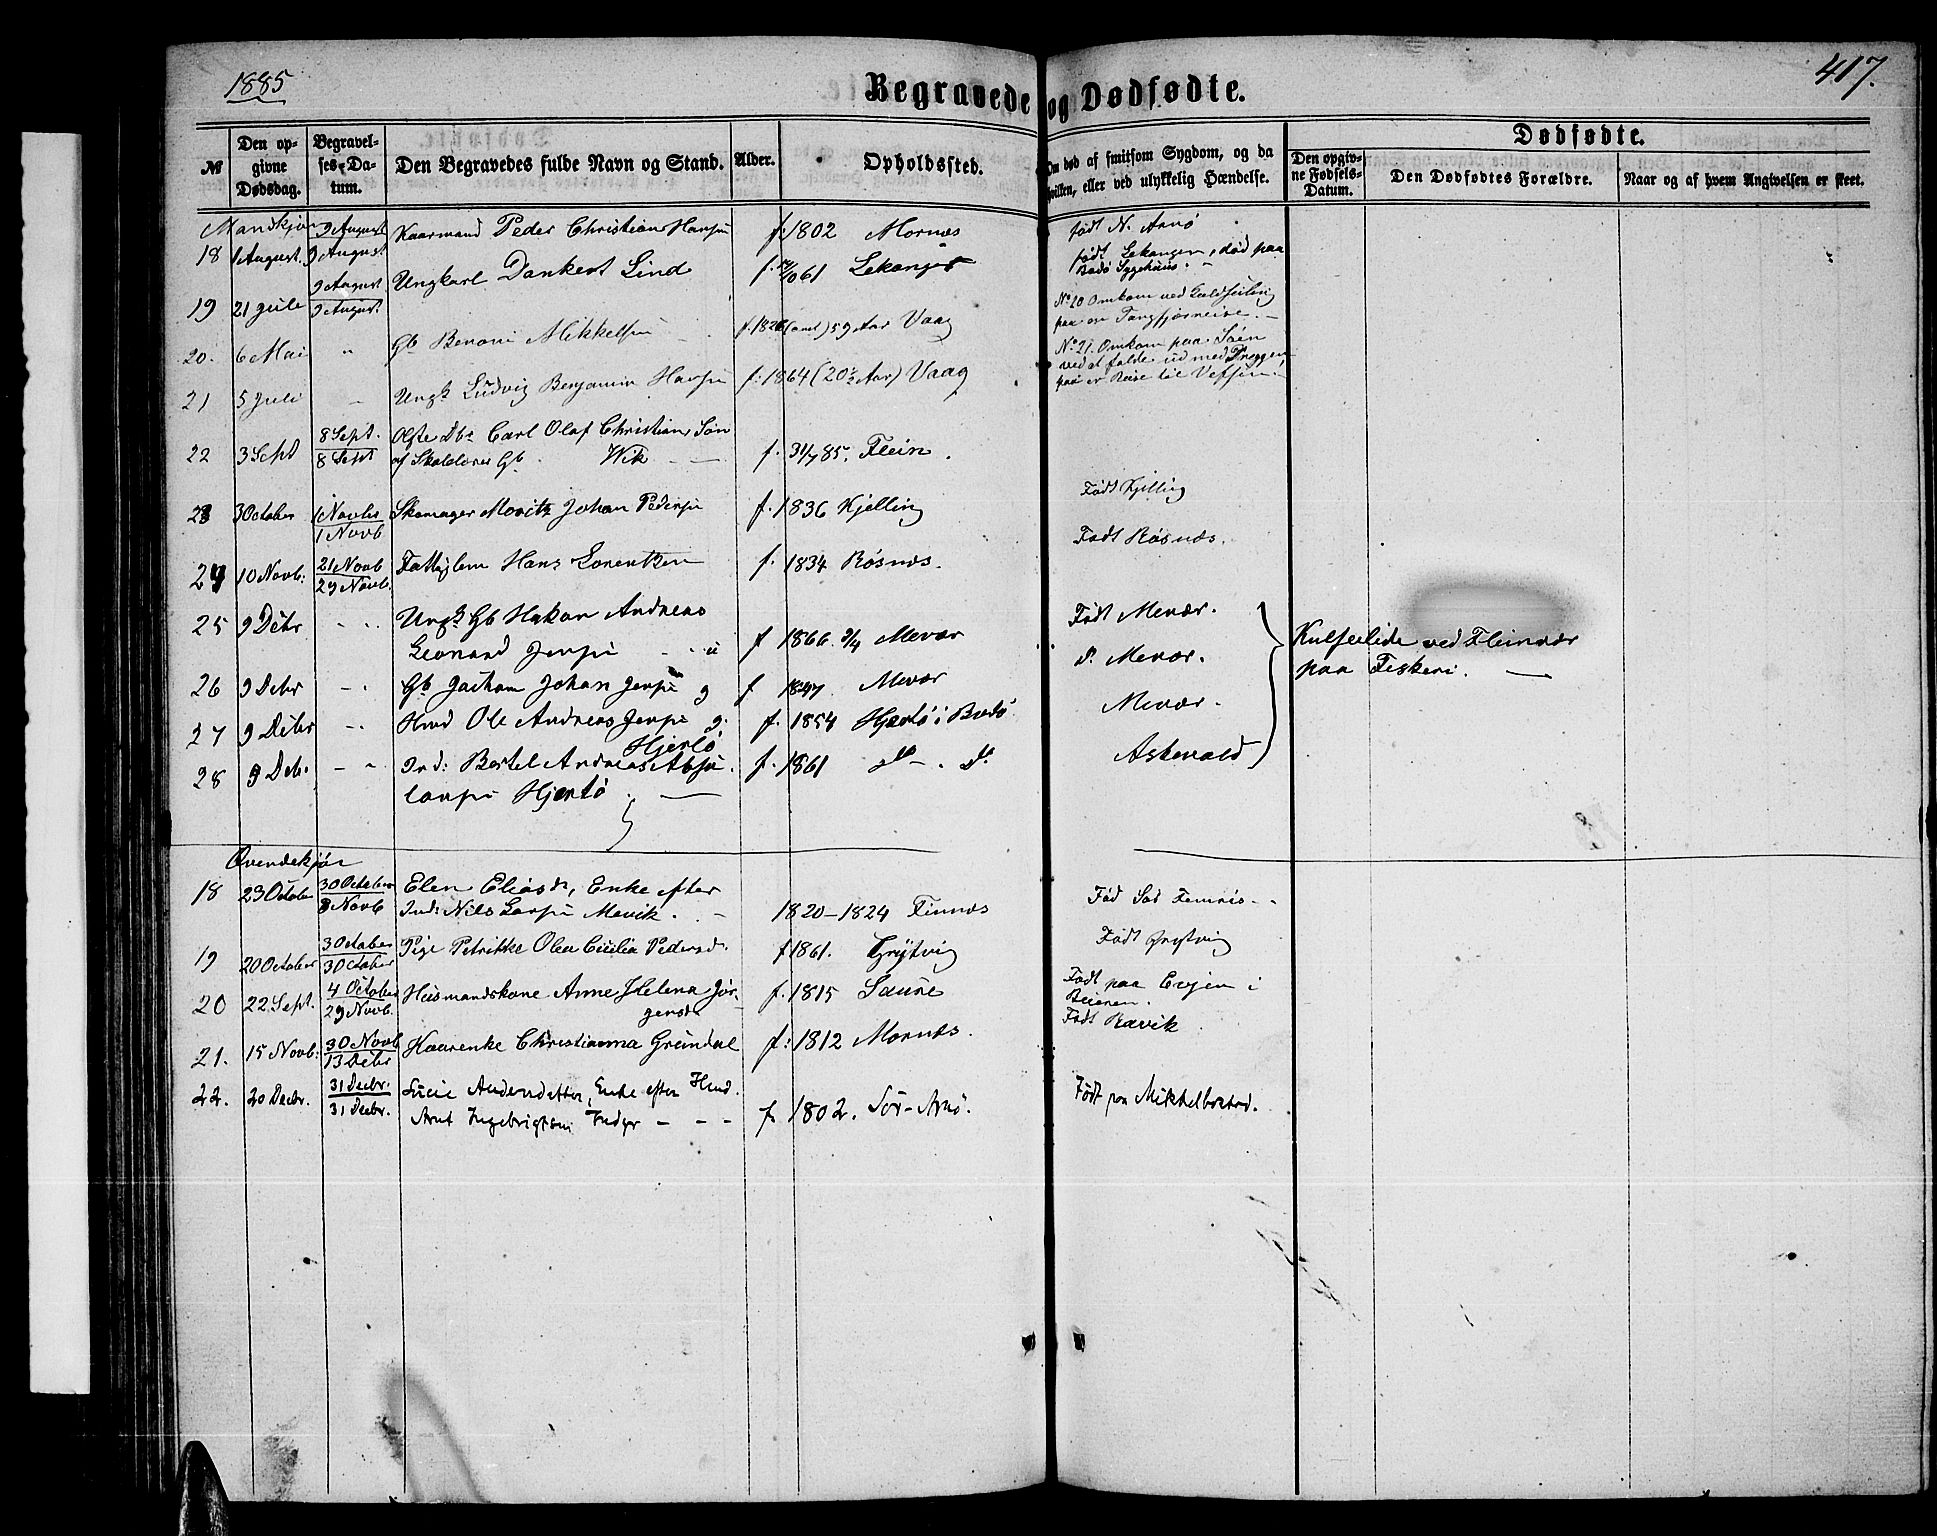 1885
Begravede og Dødfødte.
417.
№
Den opgivne Dødsdag.
Begravelses-Datum.
Den Begravedes fulde Navn og Stand.
Alder.
Opholdssted.
Om død af smitsom Sygdom, og da hvilken, eller ved ulykkelig Hændelse.
Dødfødte.
Den opgivne Fødsels-Datum.
Den Dødfødtes Forældre.
Naar og af hvem Angivelsen er skeet.
Mandkjøn
18 1 August. 9 August 9 August Kaarmand Peder Christian Hansen f. 1802 Mornæs født N. Arnø
19 21 Juli 9 August 9 August Ungkarl Dankert Lind f. 61 Lekanger født Lekanger, død paa
Bodø Sygehuus. -
20. 6 Mai " Gb Benoni Mikkelsen f. 1826 (omt) 59 Aar Vaag No 20 Omkom ved Kuldseiling
paa en
21 5 Juli - Ungk Ludvig Benjamin Hansen f. 1864 (20½ Aar) Vaag No 21. Omkom paa Søen
ved at falde ud med
paa en Reise til Vefsen.
22 3 Sept 8 Sept. 8 Sept Carl Olaf Christian Søn
af Gb. Wik f. 31/7 85. Flein.
23 3 October 1 Novbr 1 Novb Skomager Moritz Johan Pedersen f. 1836 Kjelling Født Kjelling
24 10 Novb: 21 Novb 29 Novb. Fattiglem Hans Lorentzen f. 1834 Røsnæs. Født Røsnæs.
25 9 Debr - - Ungk Gb Hakon Andreas
Leonard Jensen f 1866 9/4 Mevær Født Mevær.
26 9 Debr - - Gb Jachom Johan Jensen g f 1847 Mevær d. Mevær.
27 9 Debr - - Hmd Ole Andreas Jensen g. f. 1854 Hjertø i Bodø Mevær.
Hjertø
28 9 Deb. - - Ind: Bertel Andreas f. 1861 d - . d. Astevold
Hjertø
Kulseilede ved Fleinvær
paa Fiskeri. -
Qvindekjøn
18 23 October 30 October 8 Novb Elen Eliasd., Enke efter
Ind: Nils Larsen Mevik. - 1820-1824 Finnæs Fød Sør
19 20 October 30 October 30 October Pige Petrikke Olea Cecilia Pedersd. f 1861. Grytvig Født Grytvig
20 22 Sept. 4 October 29 Novb. Husmandskone Anne Helena Jørgensd. f. 1815 Saura Født paa Evjen i
Beieren.
21. 15 Novb: 30 Novb 13 Debr Kaarenke Christianna Grundal f: 1812 Mornæs. Født Rævik
22. 20 Decbr. 31 Decbr. 31 Decbr. Lucie Andersdatter, Enke efter Hmd.
Arnt Ingebrigtsen Indyr - - - f. 1802. Sør-Arnø. Født paa Mikkelbostad.